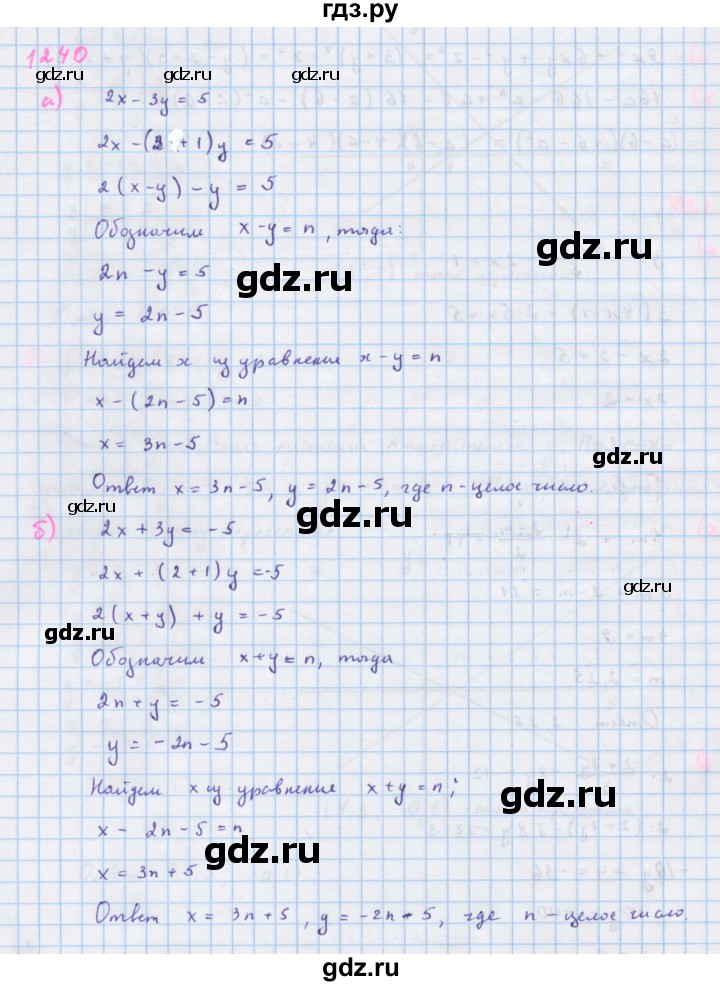 гдз.ру
1240
gdz.ru
gdz.ru
gdz.ru
а) 2x - 3y = 5
2x - (2 + 1)y = 5
2(x-y) - y = 5
Обозначим x - y = n, тогда:
gdz.ru
2n - y = 5
gdz.ru
y = 2n - 5
Найдем x из уравнение x - y = n
x - (2n - 5) = n
x = 3n - 5
gdz.ru
Ответ x = 3n - 5, y = 2n - 5, где n - целое число.
gdz.ru
gdz.ru
б) 2x + 3y = -5
2x + (2+1)y = -5
gdz.ru
2(x+y) + y = -5
gdz.ru
Обозначим x+y = n, тогда
2n + y = -5
y = -2n - 5
Найдем x из уравнение x + y = n;
gdz.ru
x - 2n - 5 = n
gdz.ru
x = 3n + 5
Ответ x = 3n + 5, y = -2n - 5, где n - целое число.
gdz.ru